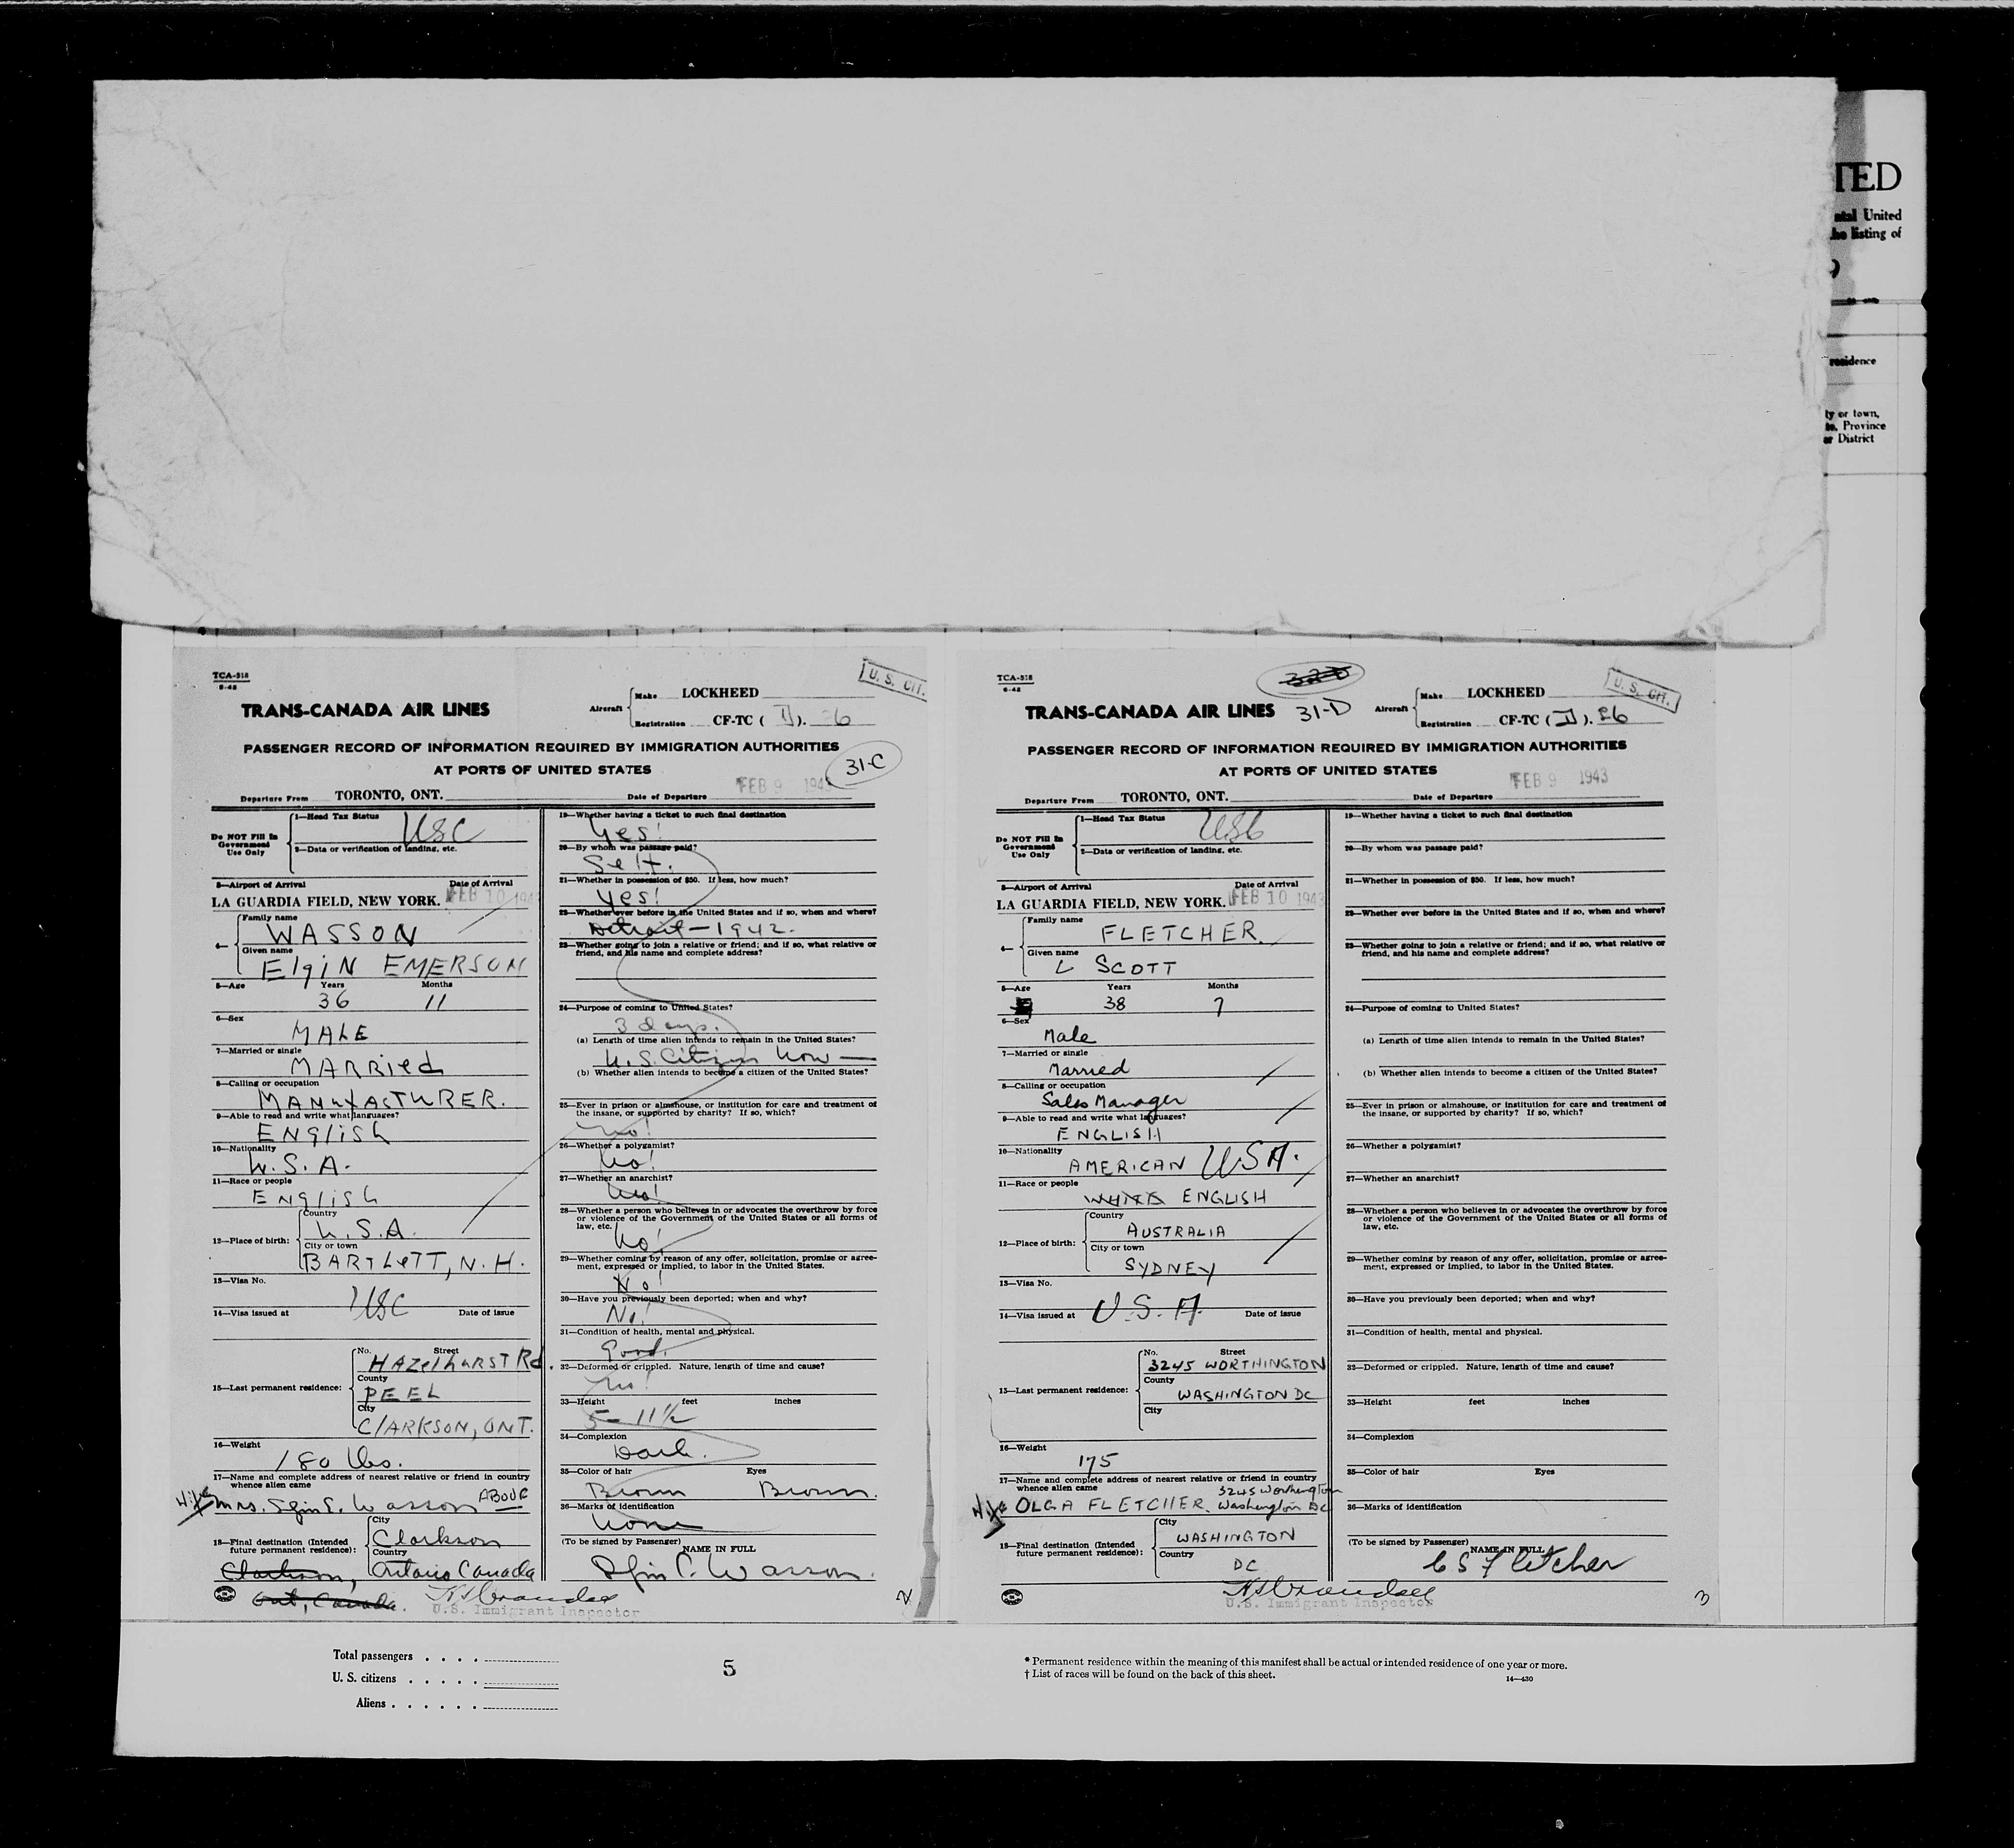 TED
ntal United
the listing of
residence
ty or town,
te, Province
or District
TCA-318
6-42
U. S. CIT.
TRANS-CANADA AIR LINES
Aircraft
Make LOCKHEED
Registration CF-TC ( ). 26
PASSENGER RECORD OF INFORMATION REQUIRED BY IMMIGRATION AUTHORITIES
AT PORTS OF UNITED STATES
31-C
Departure From TORONTO, ONT. Date of Departure FEB 9 1943
Do NOT Fill In
Government
Use Only
1—Head Tax Status USC
2—Data or verification of landing, etc.
3—Airport of Arrival Date of Arrival
LA GUARDIA FIELD, NEW YORK. FEB 10 1943
4—
Family name
WASSON
Given name
ElgiN EMERSON
5—Age Years Months
36 11
6—Sex
MALE
7—Married or single
MARRied
8—Calling or occupation
MANUFACTURER.
9—Able to read and write what languages?
ENglish
10—Nationality
U.S.A.
11—Race or people
ENglish
12—Place of birth:
Country
U.S.A.
City or town
BARTLeTT, N.H.
13—Visa No.
USC
14—Visa issued at Date of issue
15—Last permanent residence:
No. Street
HAZelhuRST Rd.
County
PEEL
City
ClARKSON, ONT.
16—Weight
180 lbs.
17—Name and complete address of nearest relative or friend in country
whence alien came
Wife Mrs. Elgin E. Wasson ABOVE
18—Final destination (Intended
future permanent residence):
City
Clarkson
Country
Clarkson, Ontario Canada
Ont, Canada.
19—Whether having a ticket to such final destination
Yes!
20—By whom was passage paid?
Self.
21—Whether in possession of $50. If less, how much?
Yes!
22—Whether ever before in the United States and if so, when and where?
Detroit—1942.
23—Whether going to join a relative or friend; and if so, what relative or
friend, and his name and complete address?
24—Purpose of coming to United States?
3 days.
(a) Length of time alien intends to remain in the United States?
U.S. Citizen now —
(b) Whether alien intends to become a citizen of the United States?
25—Ever in prison or almshouse, or institution for care and treatment of
the insane, or supported by charity? If so, which?
no!
26—Whether a polygamist?
No!
27—Whether an anarchist?
No!
28—Whether a person who believes in or advocates the overthrow by force
or violence of the Government of the United States or all forms of
law, etc.
No!
29—Whether coming by reason of any offer, solicitation, promise or agree-
ment, expressed or implied, to labor in the United States.
No!
30—Have you previously been deported; when and why?
No!
31—Condition of health, mental and physical.
Good.
32—Deformed or crippled. Nature, length of time and cause?
no!
33—Height feet inches
5 – 11½
34—Complexion
Dark.
35—Color of hair Eyes
Brown Brown.
36—Marks of identification
None
(To be signed by Passenger) NAME IN FULL
Elgin E. Wasson.
U.S. Immigrant Inspector
2
TCA-318
6-42
U. S. CIT.
TRANS-CANADA AIR LINES 31-D
Aircraft
Make LOCKHEED
Registration CF-TC ( ). 26
PASSENGER RECORD OF INFORMATION REQUIRED BY IMMIGRATION AUTHORITIES
AT PORTS OF UNITED STATES
Departure From TORONTO, ONT. Date of Departure FEB 9 1943
Do NOT Fill In
Government
Use Only
1—Head Tax Status USC
2—Data or verification of landing, etc.
3—Airport of Arrival Date of Arrival
LA GUARDIA FIELD, NEW YORK. FEB 10 1943
4—
Family name
FLETCHER.
Given name
L SCOTT
5—Age Years Months
38 7
6—Sex
Male
7—Married or single
Married
8—Calling or occupation
Sales Manager
9—Able to read and write what languages?
ENGLISH
10—Nationality
AMERICAN U.S.A.
11—Race or people
WHITE ENGLISH
12—Place of birth:
Country
AUSTRALIA
City or town
SYDNEY
13—Visa No.
14—Visa issued at U.S.A. Date of issue
15—Last permanent residence:
No. Street
3245 WORTHINGTON
County
WASHINGTON DC
City
16—Weight
175
17—Name and complete address of nearest relative or friend in country
whence alien came 3245 Worthington
Wife OLGA FLETCHER. Washington DC
18—Final destination (Intended
future permanent residence):
City
WASHINGTON
Country
DC
19—Whether having a ticket to such final destination
20—By whom was passage paid?
21—Whether in possession of $50. If less, how much?
22—Whether ever before in the United States and if so, when and where?
23—Whether going to join a relative or friend; and if so, what relative or
friend, and his name and complete address?
24—Purpose of coming to United States?
(a) Length of time alien intends to remain in the United States?
(b) Whether alien intends to become a citizen of the United States?
25—Ever in prison or almshouse, or institution for care and treatment of
the insane, or supported by charity? If so, which?
26—Whether a polygamist?
27—Whether an anarchist?
28—Whether a person who believes in or advocates the overthrow by force
or violence of the Government of the United States or all forms of
law, etc.
29—Whether coming by reason of any offer, solicitation, promise or agree-
ment, expressed or implied, to labor in the United States.
30—Have you previously been deported; when and why?
31—Condition of health, mental and physical.
32—Deformed or crippled. Nature, length of time and cause?
33—Height feet inches
34—Complexion
35—Color of hair Eyes
36—Marks of identification
(To be signed by Passenger) NAME IN FULL
L S Fletcher
U.S. Immigrant Inspector
3
Total passengers . . . .
U. S. citizens . . . . .
Aliens . . . . . .
5
* Permanent residence within the meaning of this manifest shall be actual or intended residence of one year or more.
† List of races will be found on the back of this sheet.
14—430